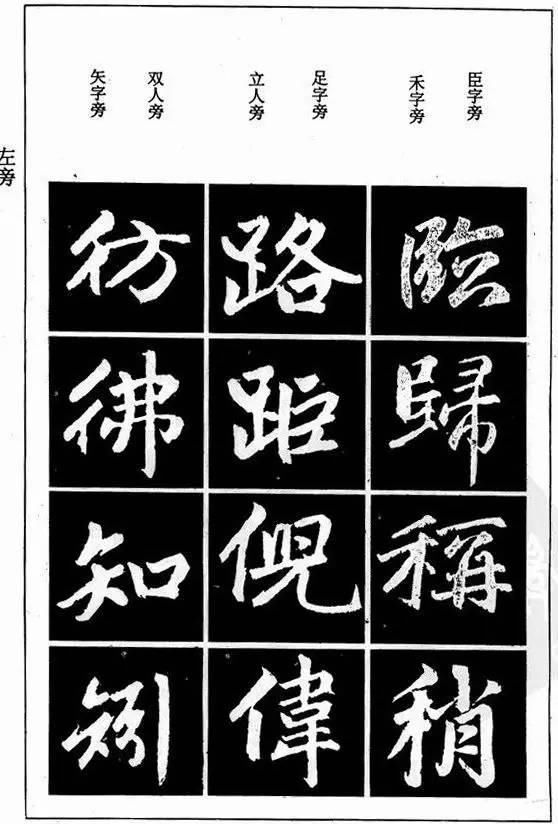 臣字旁
禾字旁
足字旁
立人旁
双人旁
矢字旁
左旁
臨歸稱稍
路距倪偉
彷彿知矧